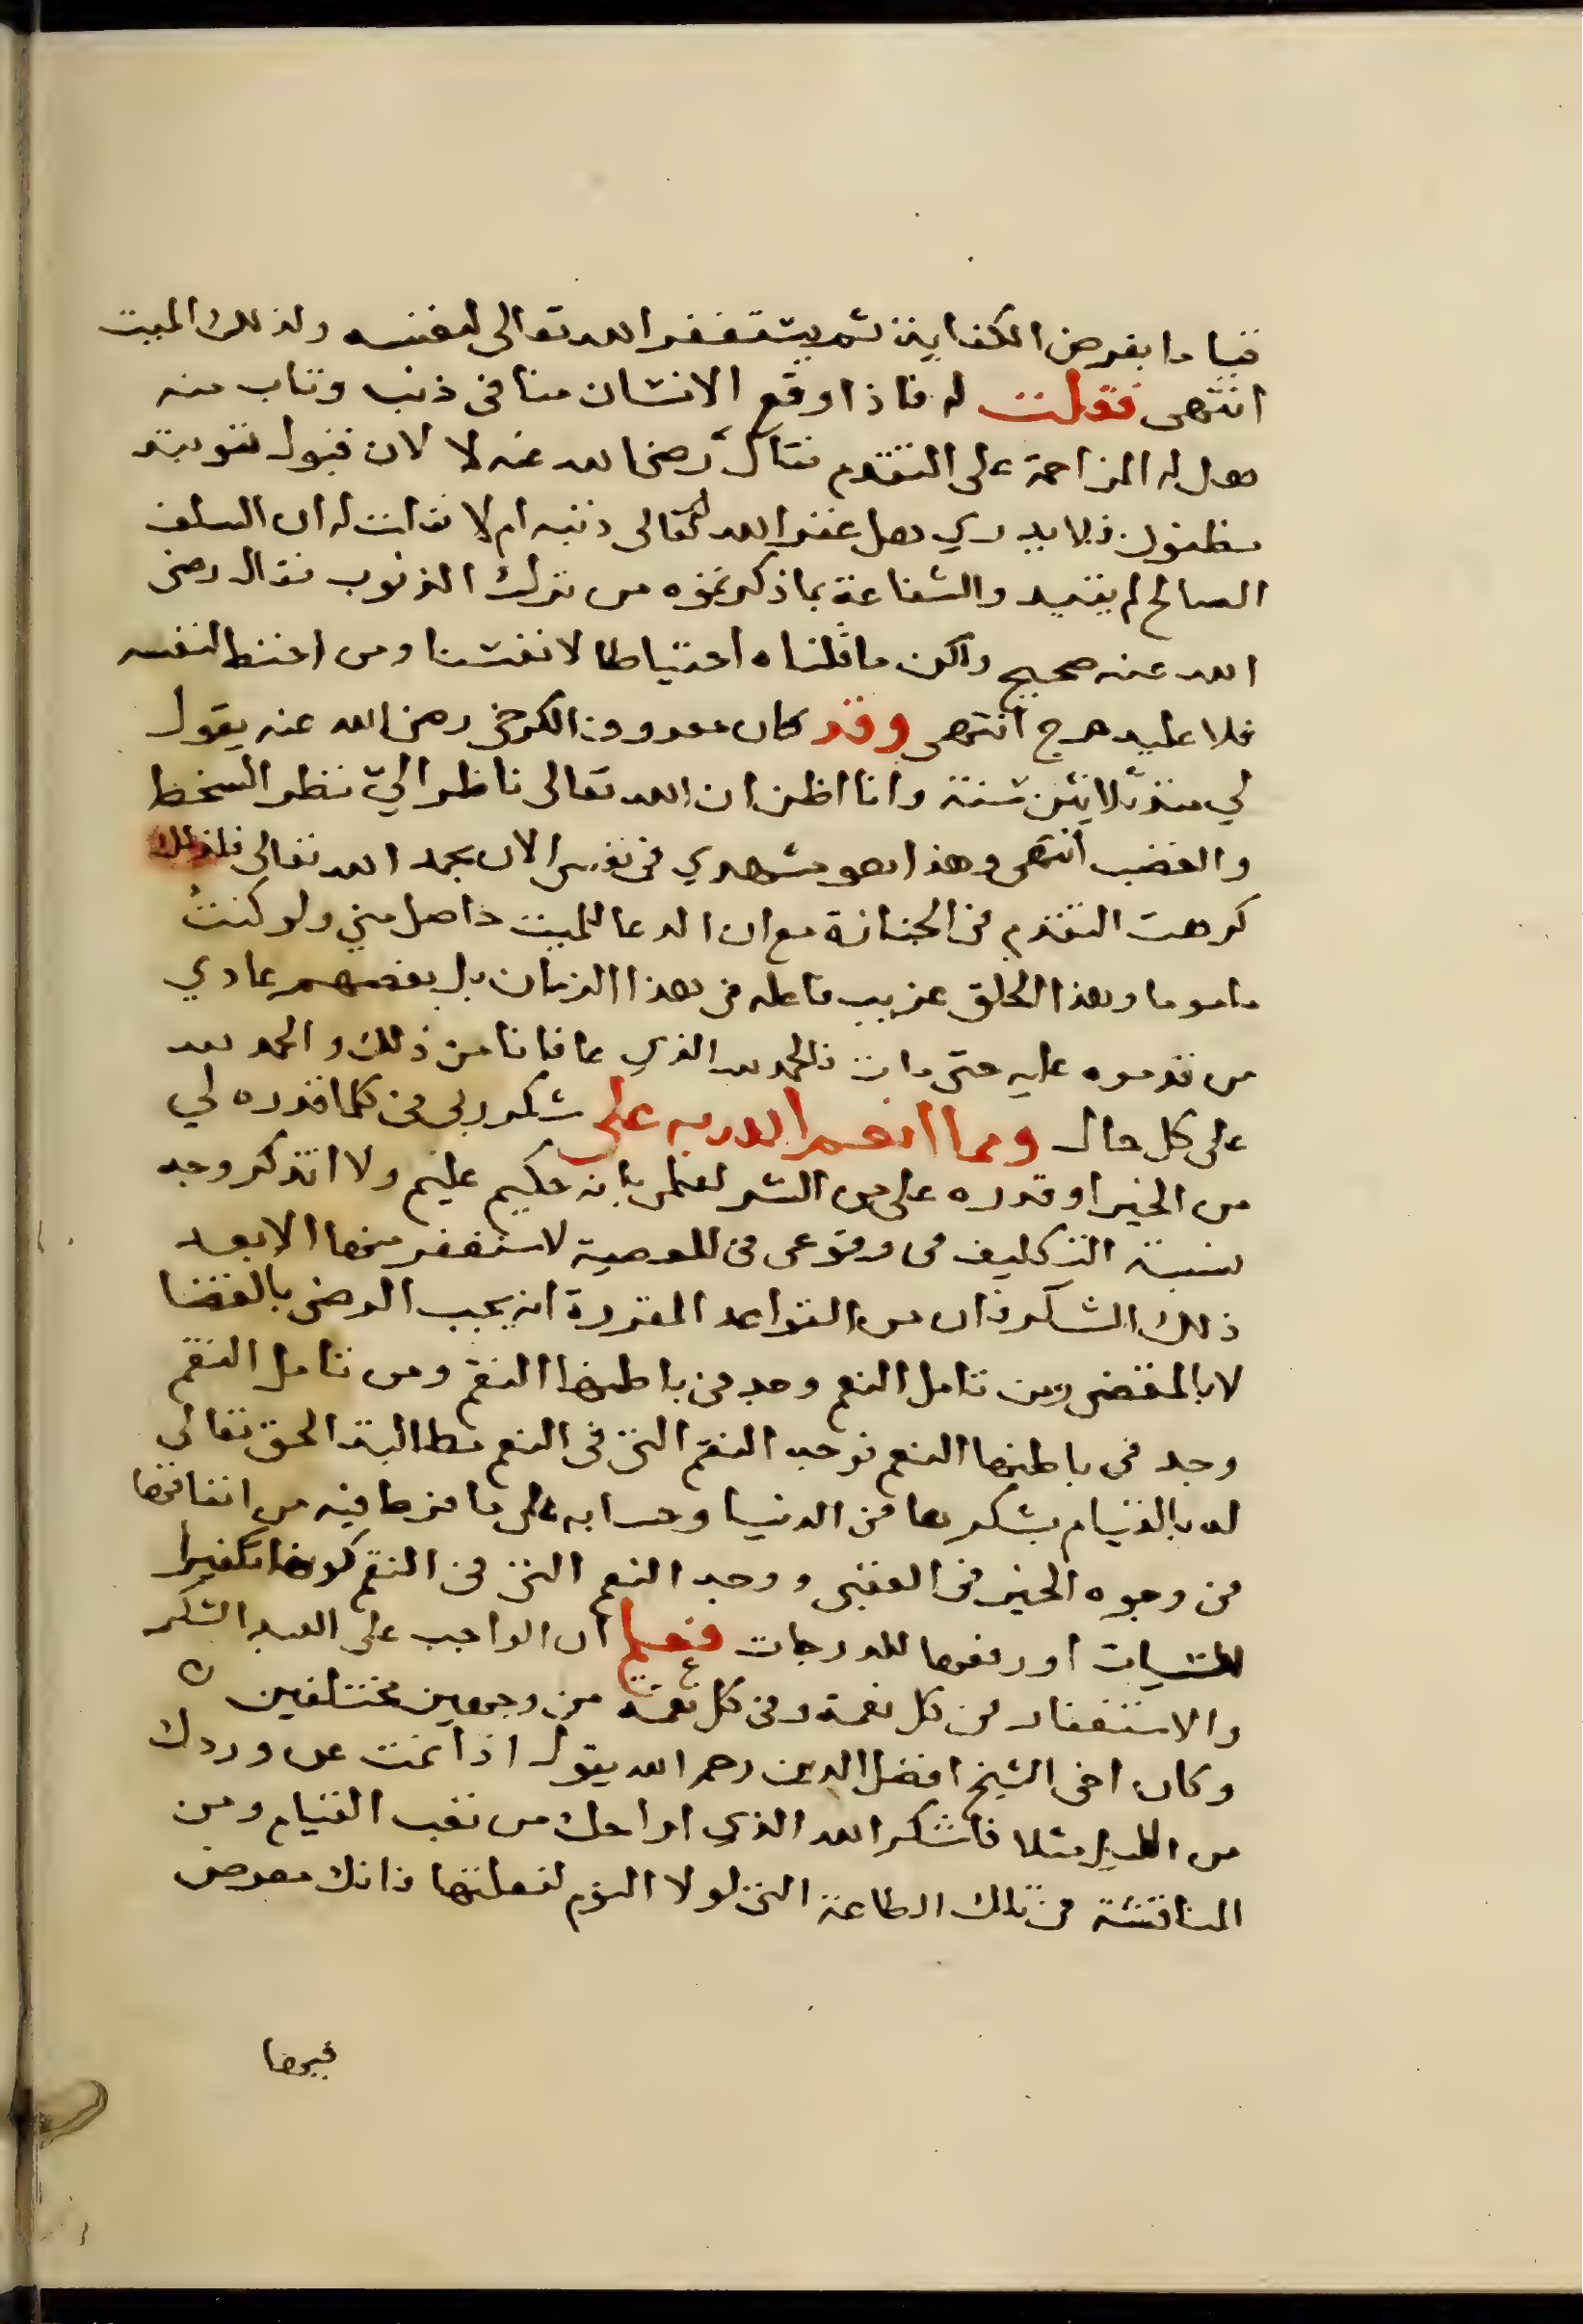 قياما بفرض الكفاية ثم يستغفر الله تعالى لنفسه ولذلك الميت
انتهى فقلت له فاذا وقع الانسان منا فى ذنب وتاب منه
هل له المزاحمة على التقدم فقال رضى الله عنه لا لان قبول توبته
مظنون فلا يدري هل غفر الله تعالى ذنبه ام لا فقلت له ان السلف
الصالح لم يقيد والشفاعة بما ذكرتموه من ترك الذنوب فقال رضى
الله عنه صحيح ولكن ما قلناه احتياطا لانفسنا ومن احتط لنفسه
فلا عليه حرج انتهى وقد كان معروف الكرخى رضى الله عنه يقول
لي منذ ثلاثين سنة وانا اظن ان الله تعالى ناظر الي نظر السخط
والغضب انتهى وهذا هو مشهدي فى نفسى الان بحمد الله تعالى فلذلك
كرهت التقدم فى الجنازة مع ان الدعا للميت حاصل مني ولو كنت
ماموما وهذا الخلق غريب فاعله فى هذا الزمان بل بعضهم عادي
من قدموه عليه حتى مات فالحمد لله الذي عافانا من ذلك والحمد لله
على كل حال ومما انعم الله به على شكر ربى فى كلما قدره لي
من الخير او قدره على من الشر لعلمى بانه حكيم عليم ولا اتذكر وجه
نسبة التكليف فى وقوعى فى المعصية لاستغفر منها الا بعد
ذلك الشكر فان من القواعد المقررة انه يجب الرضى بالقضا
لا بالمقضى ومن تامل النعم وجد فى باطنها النقم ومن تامل النقم
وجد فى باطنها النعم فوجد النقم التى فى النعم مطالبة الحق تعالى
له بالقيام بشكرها فى الدنيا وحسابه على ما فرط فيه من انفاقها
فى وجوه الخير فى العقبى ووجد النعم التى فى النقم كونها تكفيرا
للسيات او رفعها للدرجات فعلم ان الواجب على العبد الشكر
والاستغفار فى كل نعمة وفى كل نقمة من وجهين مختلفين
وكان اخى الشيخ افضل الدين رحمه الله يقول اذا نمت عن وردك
من الليل مثلا فاشكر الله الذي اراحك من تعب القيام ومن
المناقشة فى تلك الطاعة التى لولا النوم لفعلتها فانك معرض
فيها